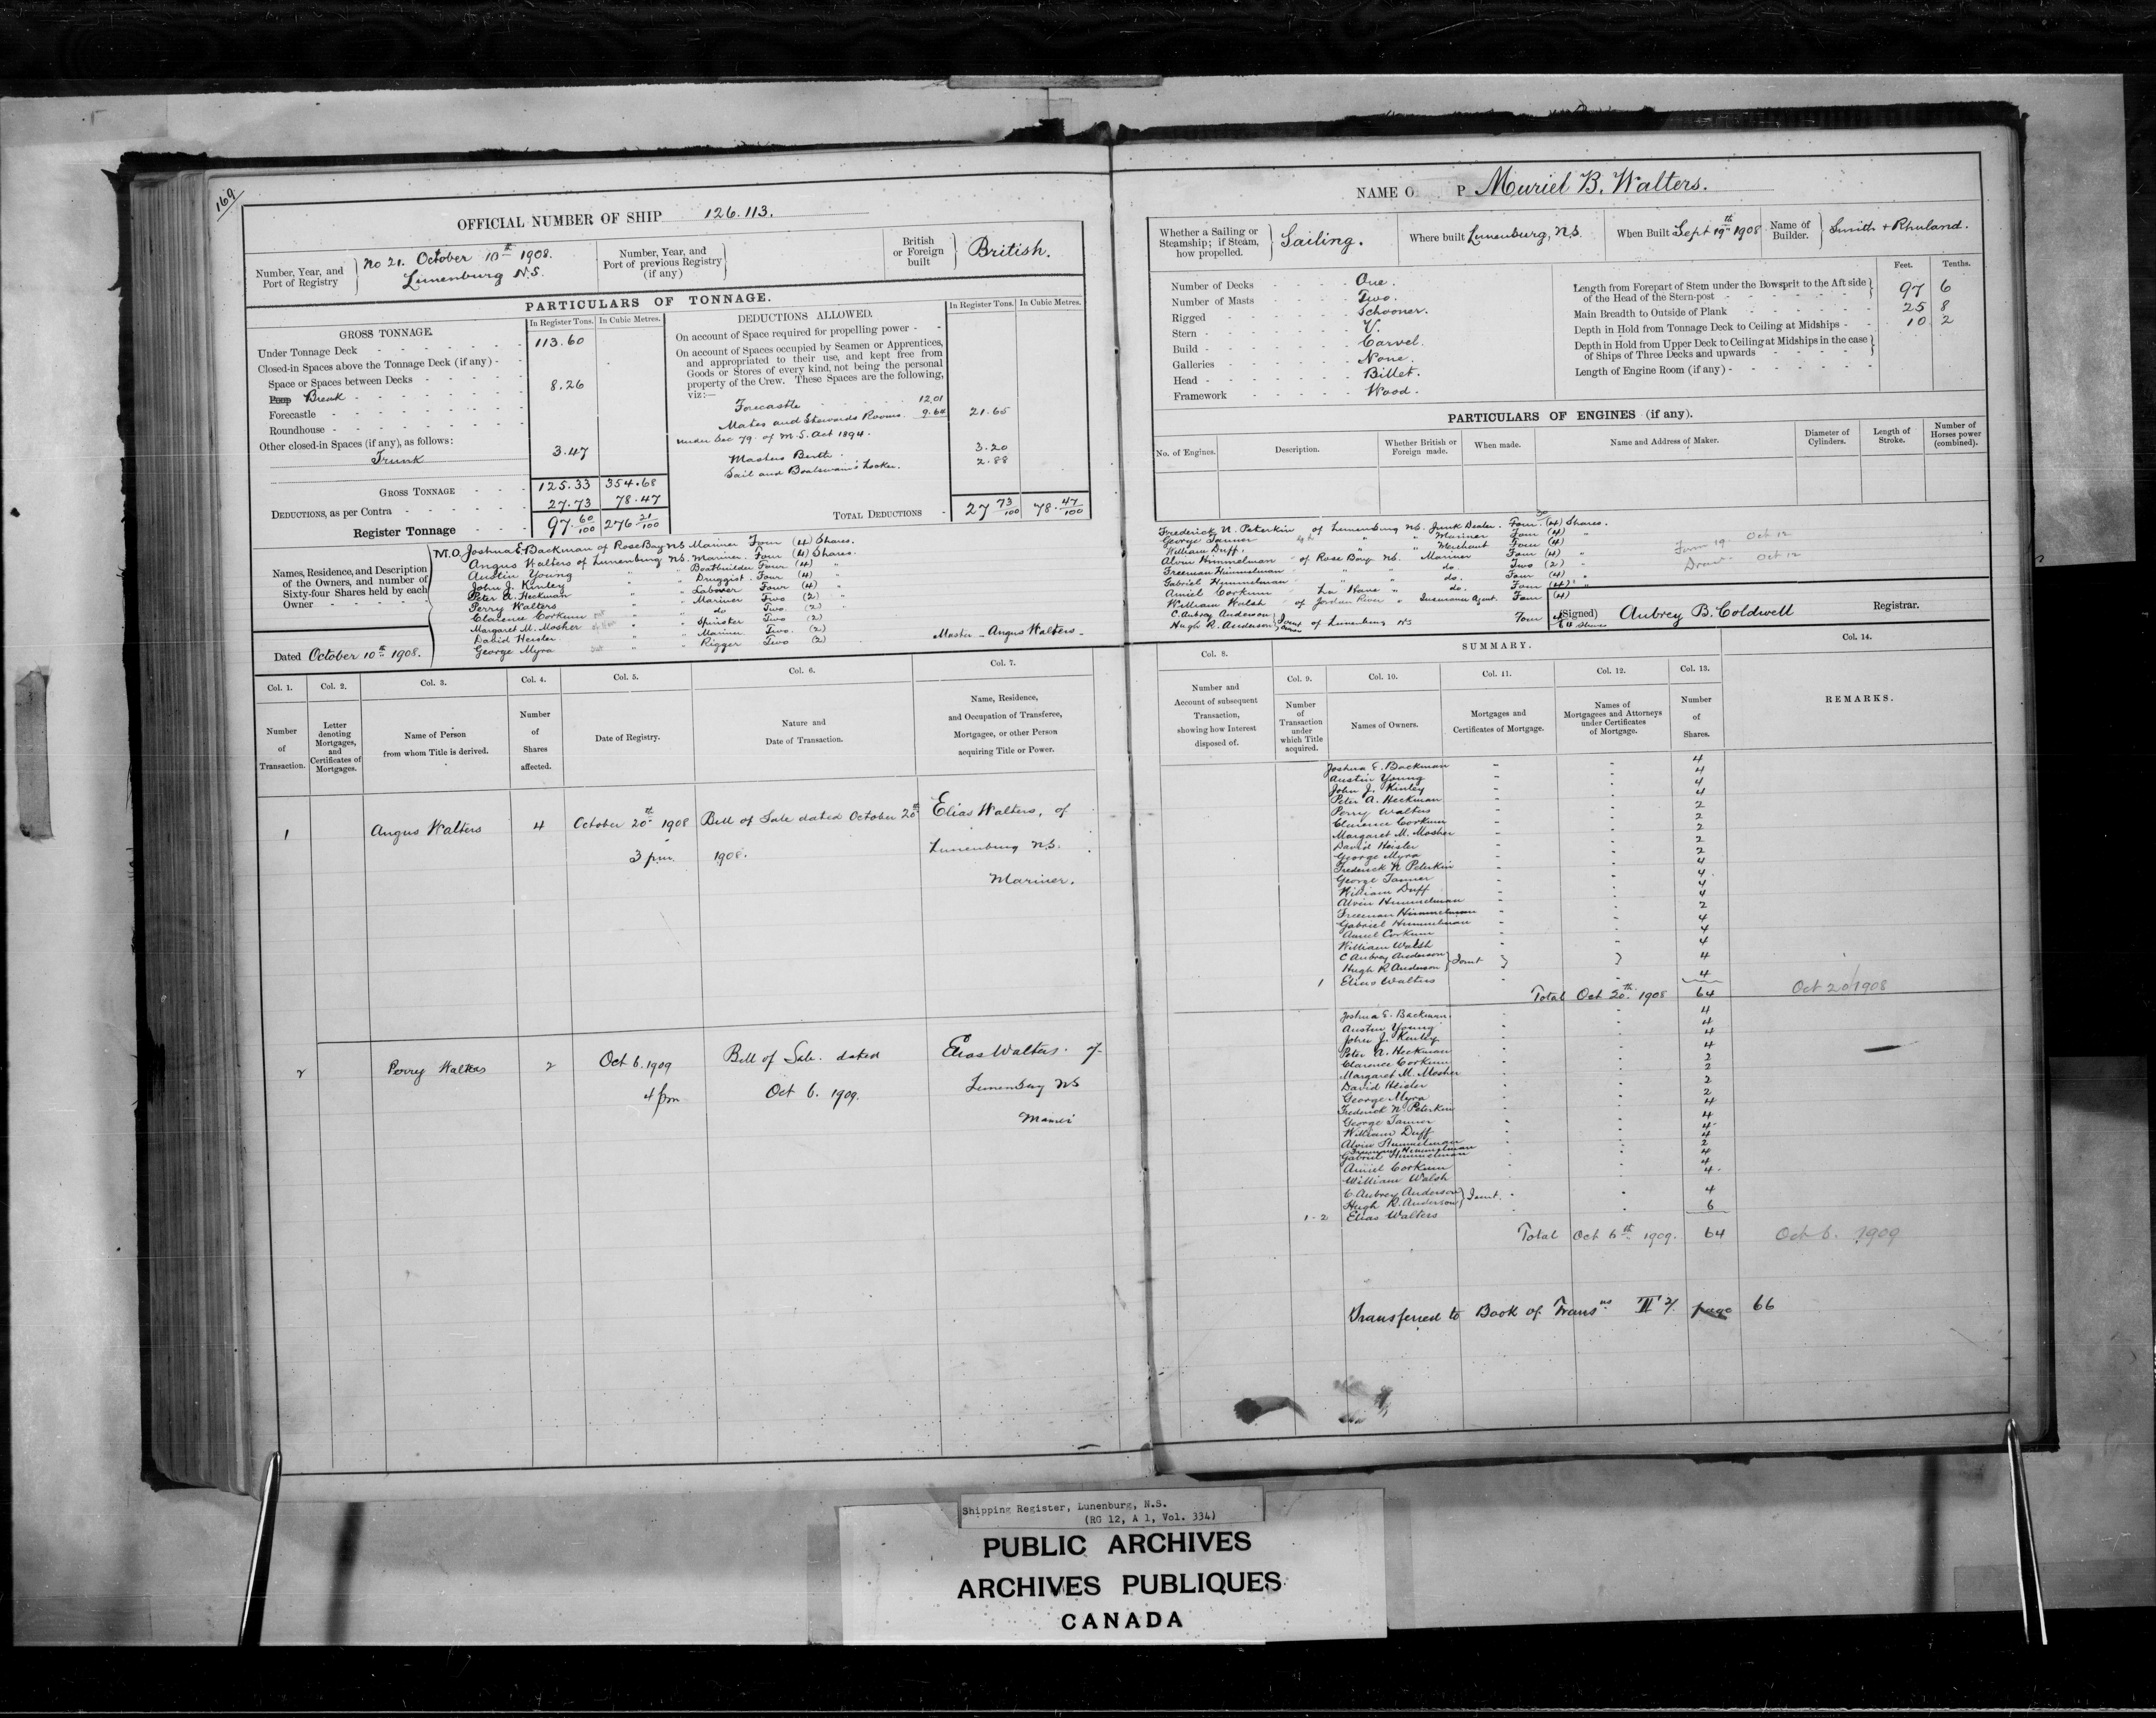 169
OFFICIAL NUMBER OF SHIP 126.113.
Number, Year, and Port of Registry } No 21. October 10th 1908. Lunenburg N.S.
Number, Year, and Port of previous Registry (if any) }
British or Foreign built } British.
PARTICULARS OF TONNAGE.
GROSS TONNAGE.
In Register Tons. In Cubic Metres.
Under Tonnage Deck 113.60
Closed-in Spaces above the Tonnage Deck (if any)
Space or Spaces between Decks
Poop Break 8.26
Forecastle
Roundhouse
Other closed-in Spaces (if any), as follows:
Trunk 3.47
GROSS TONNAGE 125.33 354.68
DEDUCTIONS, as per Contra 27.73 78.47
Register Tonnage 97.60/100 276 21/100
DEDUCTIONS ALLOWED.
In Register Tons. In Cubic Metres.
On account of Space required for propelling power
On account of Spaces occupied by Seamen or Apprentices,
and appropriated to their use, and kept free from
Goods or Stores of every kind, not being the personal
property of the Crew. These Spaces are the following,
viz:—
Forecastle 12.01
Mates and Stewards Rooms. 9.64 21.65
under Sec 79 of M.S. Act 1894.
Masters Berth 3.20
Sail and Boatswain's Locker. 2.88
TOTAL DEDUCTIONS 27 73/100 78.47/100
Names, Residence, and Description of the Owners, and number of Sixty-four Shares held by each Owner
M.O. Joshua E. Backman of Rose Bay NS Mariner Four (4) Shares.
Angus Walters of Lunenburg NS. Mariner. Four (4) Shares.
Austin Young " " Boatbuilder Four (4) "
John J. Kinley " " Druggist. Four (4) "
Peter A. Heckman " " Laborer Four (4) "
Perry Walters " " Mariner Two (2) "
Clarence Corkum " " do Two. (2) "
Margaret M. Mosher " " Spinster Two (2)
David Heisler " " Mariner. Two. (2)
George Myra " " Rigger Two (2)
Dated October 10th 1908.
Master - Angus Walters -
Col. 1. Col. 2. Col. 3. Col. 4. Col. 5. Col. 6. Col. 7.
Number of Transaction.
Letter denoting Mortgages, and Certificates of Mortgages.
Name of Person from whom Title is derived.
Number of Shares affected.
Date of Registry.
Nature and Date of Transaction.
Name, Residence, and Occupation of Transferee, Mortgagee, or other Person acquiring Title or Power.
1 Angus Walters 4 October 20th 1908 Bill of Sale dated October 20th Elias Walters, of
3 pm. 1908. Lunenburg NS.
Mariner.
2 Perry Walters 2 Oct 6. 1909 Bill of Sale. dated Elias Walters. of
4 pm Oct 6. 1909. Lunenburg NS
NAME O P Muriel B. Walters.
Whether a Sailing or Steamship; if Steam, how propelled. } Sailing.
Where built Lunenburg, N.S.
When Built Sept 19th 1908
Name of Builder. } Smith + Rhuland.
Number of Decks One.
Number of Masts Two.
Rigged Schooner.
Stern V.
Build Carvel.
Galleries None.
Head Billet.
Framework Wood.
Feet. Tenths.
Length from Forepart of Stem under the Bowsprit to the Aft side of the Head of the Stern-post 97 6
Main Breadth to Outside of Plank 25 8
Depth in Hold from Tonnage Deck to Ceiling at Midships 10 2
Depth in Hold from Upper Deck to Ceiling at Midships in the case of Ships of Three Decks and upwards
Length of Engine Room (if any)
PARTICULARS OF ENGINES (if any).
No. of Engines. Description. Whether British or Foreign made. When made. Name and Address of Maker. Diameter of Cylinders. Length of Stroke. Number of Horses power (combined).
Frederick N. Peterkin of Lunenburg NS. Junk Dealer. Four (4) Shares.
George Tanner " " Mariner Four (4) "
William Duff. " " Merchant Four (4)
Alvin Himmelman of Rose Bay NS. Mariner Four (4) "
Freeman Himmelman " " do. Two (2) "
Gabriel Himmelman " " do. Four (4) "
Amiel Corkum La Have " do. Four (4) "
William Walsh of Jordan River " Insurance Agent. Four (4)
C. Aubrey Anderson
Hugh R. Anderson } Joint Owners of Lunenburg NS Four 4
64 Shares
Form 19 Oct 12
Oct 12
(Signed) Aubrey B. Coldwell Registrar.
Col. 8. SUMMARY. Col. 14.
Col. 9. Col. 10. Col. 11. Col. 12. Col. 13.
Number and Account of subsequent Transaction, showing how Interest disposed of.
Number of Transaction under which Title acquired.
Names of Owners.
Mortgages and Certificates of Mortgage.
Names of Mortgagees and Attorneys under Certificates of Mortgage.
Number of Shares.
REMARKS.
Joshua E. Backman 4
Austin Young 4
John J. Kinley 4
Peter A. Heckman 4
Perry Walters 2
Clarence Corkum 2
Margaret M. Mosher 2
David Heisler 2
George Myra 2
Frederick N Peterkin 4
George Tanner 4
William Duff 4
Alvin Himmelman 4
Freeman Himmelman 2
Gabriel Himmelman 4
Amiel Corkum 4
William Walsh 4
C Aubrey Anderson
Hugh R Anderson } Joint 4
1 Elias Walters 4
Total Oct 20th 1908 64 Oct 20/1908
Joshua E. Backman. 4
Austin Young 4
John J. Kinley 4
Peter A. Heckman 4
Clarence Corkum 2
Margaret M. Mosher 2
David Heisler 2
George Myra 2
Frederick N. Peterkin 4
George Tanner 4
William Duff 4
Alvin Himmelman 4
Freeman Himmelman 2
Gabriel Himmelman 4
Amiel Corkum 4
William Walsh 4
C. Aubrey Anderson
Hugh R. Anderson } Joint. 4
1-2 Elias Walters 6
Total Oct 6th 1909. 64 Oct 6. 1909
Transferred to Book of Transns page 66
Shipping Register, Lunenburg, N.S.
(RG 12, A 1, Vol. 334)
PUBLIC ARCHIVES
ARCHIVES PUBLIQUES
CANADA